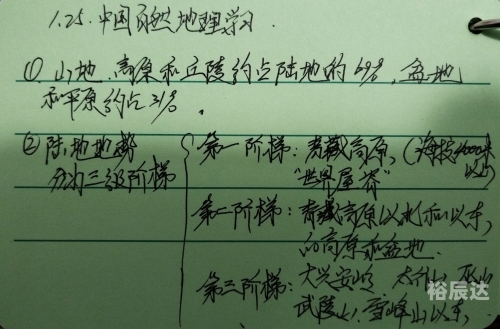 1.25.中国自然地理学习.
① 山地、高原和丘陵约占陆地的69%,盆地
和平原约占31%.
② 陆地地势
分为三级阶梯
第一阶梯:青藏高原,(海拔4000米
以上)
"世界屋脊"
第二阶梯:青藏高原以北和以东,
的高原和盆地.
第三阶梯:大兴安岭、太行山、巫山
武陵山、雪峰山以东,
裕辰达